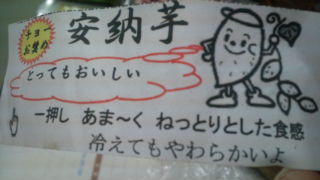 チョー
お薦め
安納芋
とってもおいしい
一押し あま～く ねっとりとした食感
冷えてもやわらかいよ